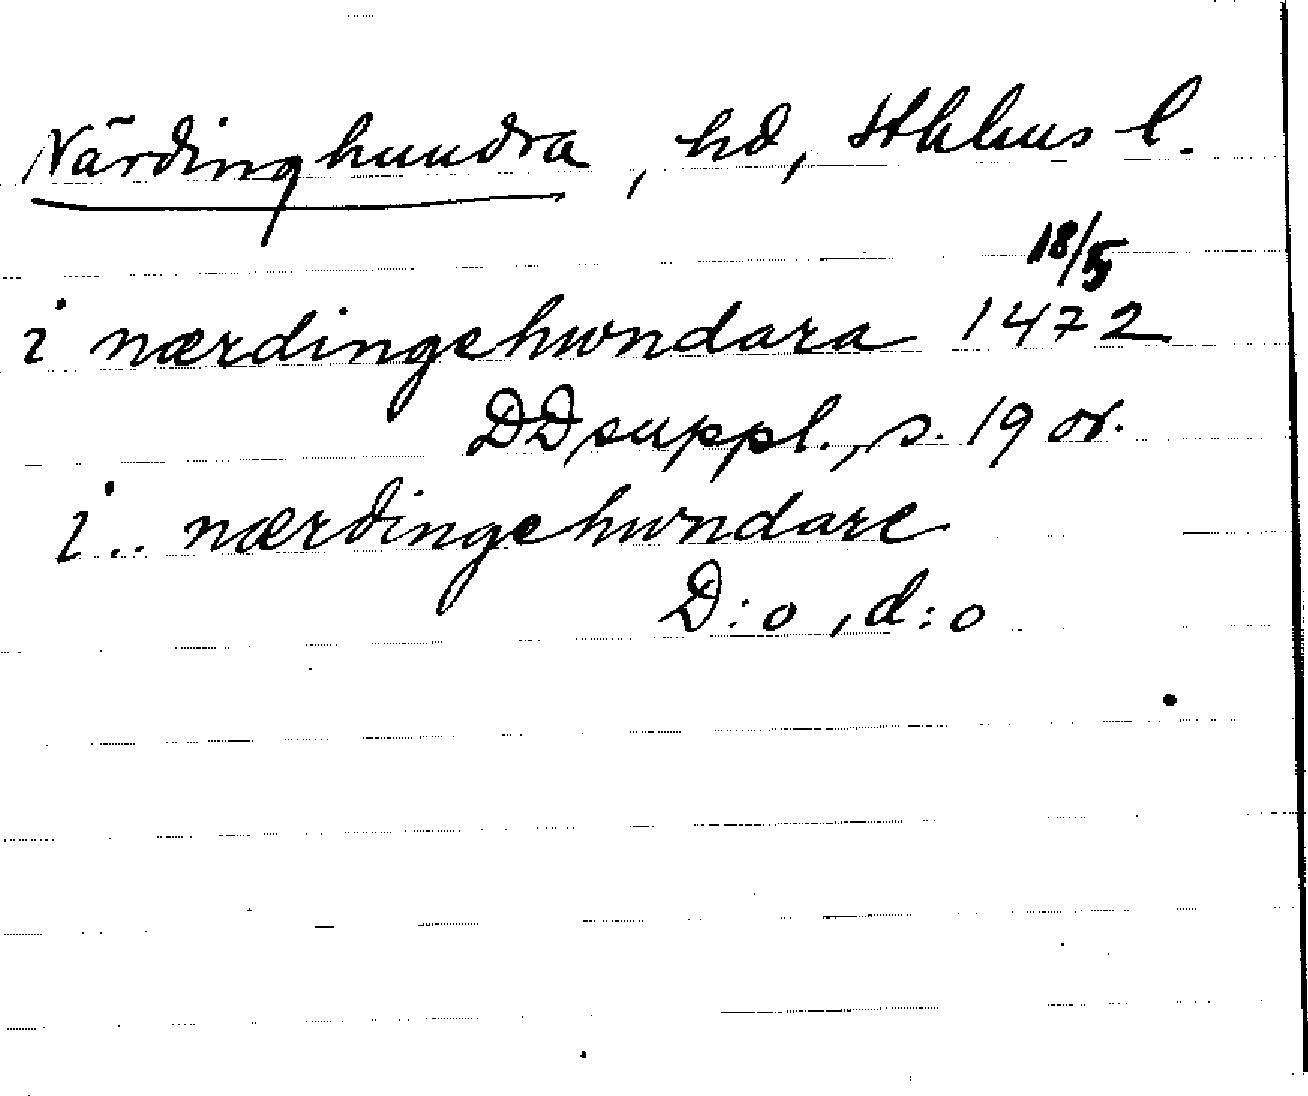 Närdinghundra, hd, Sthlms l.
i nærdingehwndara 1472 18/5
DD suppl., s. 19 or.
i.. nærdingehwndare
D:o, d:o